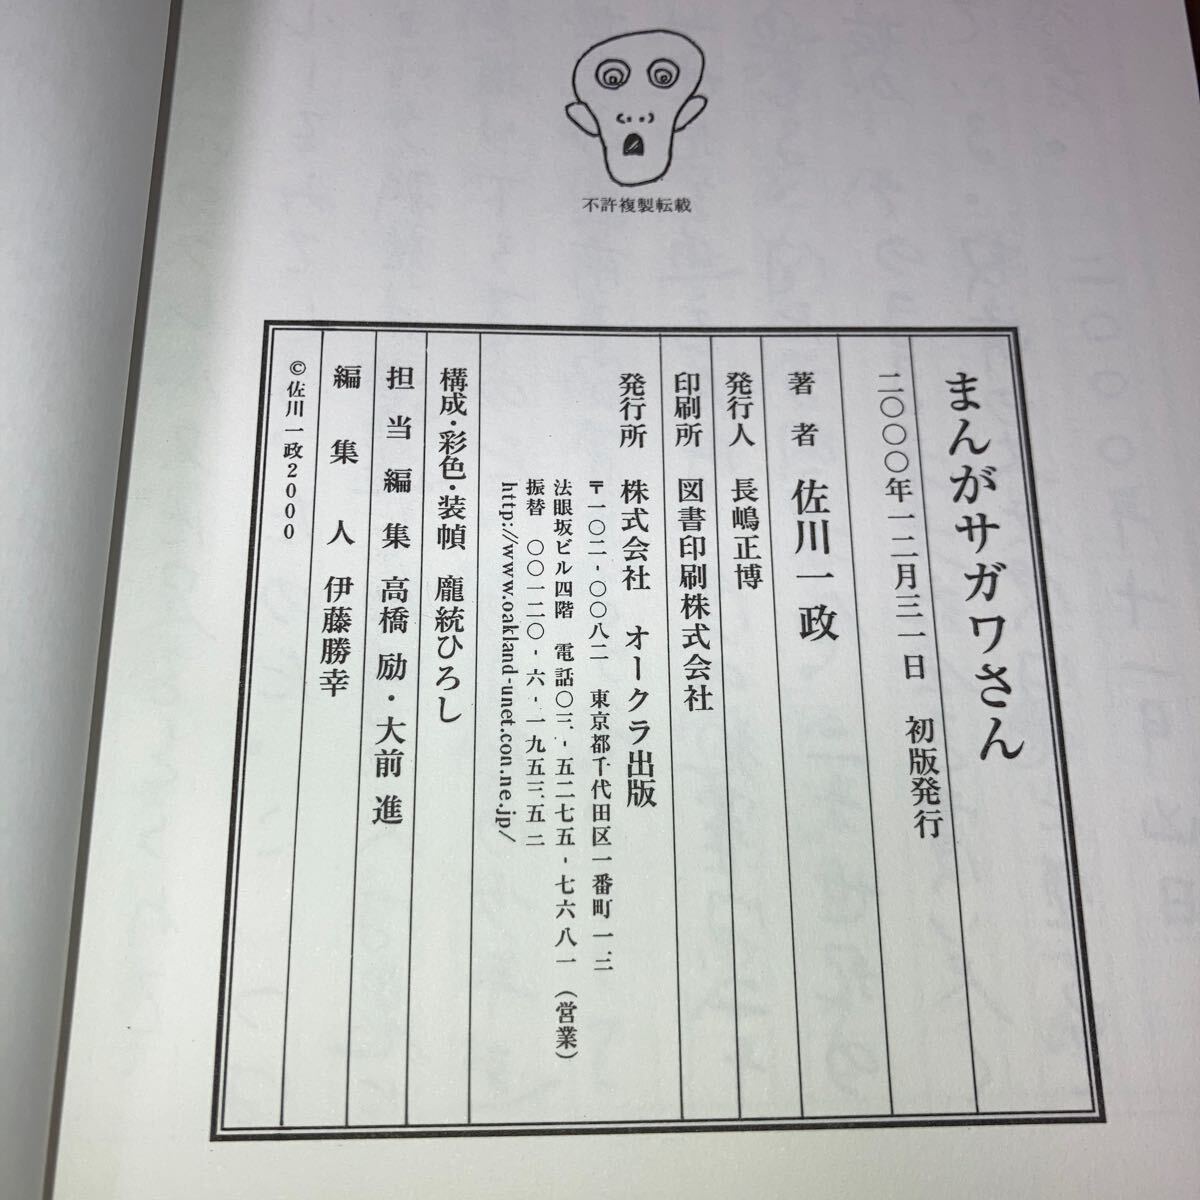 不許複製転載
まんがサガワさん
二〇〇〇年一二月三一日　初版発行
著者　佐川一政
発行人　長嶋正博
印刷所　図書印刷株式会社
発行所　株式会社　オークラ出版
〒一〇二-〇〇八二　東京都千代田区一番町一.二
法眼坂ビル四階　電話〇三-五二七五-七六八一（営業）
振替　〇〇一二〇-六-一九五三五二
http://www.oakland-unet.con.ne.jp/
構成・彩色・装幀　龐統ひろし
担当編集　高橋 励・大前 進
編集人　伊藤勝幸
©佐川一政2000